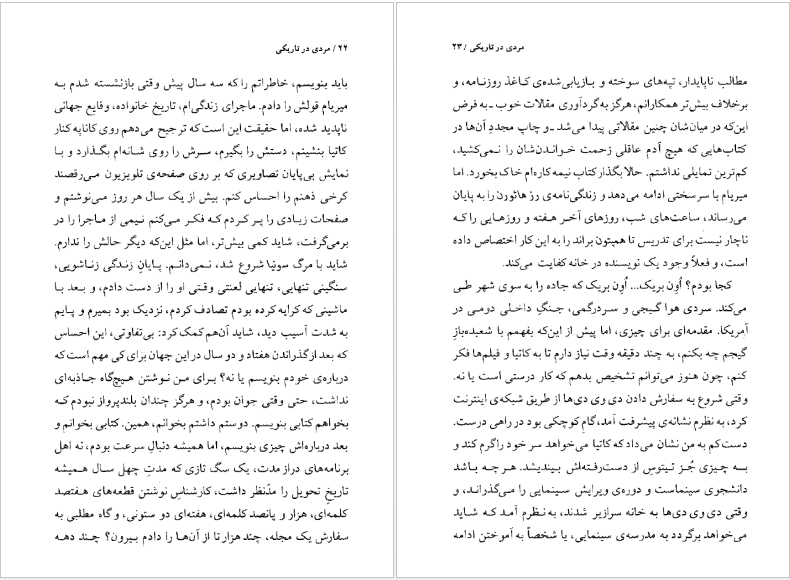 ۲۲ / مردی در تاریکی
باید بنویسم، خاطراتم را که سه سال پیش وقتی بازنشسته شدم به
میریام قولش را دادم. ماجرای زندگی‌ام، تاریخ خانواده، وقایع جهانی
ناپدید شده، اما حقیقت این است که ترجیح می‌دهم روی کاناپه کنار
کاتیا بنشینم، دستش را بگیرم، سرش را روی شانه‌ام بگذارد و با
نمایش بی‌پایان تصاویری که بر روی صفحه‌ی تلویزیون می‌رقصند
کرخی ذهنم را احساس کنم. بیش از یک سال هر روز می‌نوشتم و
صفحات زیادی را پر کردم که فکر می‌کنم نیمی از ماجرا را در
برمی‌گرفت، شاید کمی بیش‌تر، اما مثل این‌که دیگر حالش را ندارم.
شاید با مرگ سونیا شروع شد، نمی‌دانم. پایانِ زندگی زناشویی،
سنگینی تنهایی، تنهایی لعنتی وقتی او را از دست دادم، و بعد با
ماشینی که کرایه کرده بودم تصادف کردم، نزدیک بود بمیرم و پایم
به شدت آسیب دید، شاید آن‌هم کمک کرد: بی‌تفاوتی، این احساس
که بعد از گذراندن هفتاد و دو سال در این جهان برای کی مهم است که
درباره‌ی خودم بنویسم یا نه؟ برای من نوشتن هیچ‌گاه جاذبه‌ای
نداشت، حتی وقتی جوان بودم، و هرگز چندان بلندپرواز نبودم که
بخواهم کتابی بنویسم. دوستم داشتم بخوانم، همین. کتابی بخوانم و
بعد درباره‌اش چیزی بنویسم، اما همیشه دنبالِ سرعت بودم، نه اهل
برنامه‌های دراز مدت، یک سگ تازی که مدتِ چهل سال همیشه
تاریخ تحویل را مدّنظر داشت، کارشناسِ نوشتن قطعه‌های هفتصد
کلمه‌ای، هزار و پانصد کلمه‌ای، هفته‌ای دو ستونی، و گاه مطلبی به
سفارش یک مجله، چند هزار تا از آن‌ها را دادم بیرون؟ چند دهه
مردی در تاریکی / ۲۳
مطالب ناپایدار، تپه‌های سوخته و بازیابی‌شده‌ی کاغذ روزنامه، و
برخلاف بیش‌تر همکارانم، هرگز به گردآوری مقالات خوب ـ به فرض
این‌که در میان‌شان چنین مقالاتی پیدا می‌شد ـ و چاپ مجددِ آن‌ها در
کتاب‌هایی که هیچ آدم عاقلی زحمت خواندن‌شان را نمی‌کشید،
کم‌ترین تمایلی نداشتم. حالا بگذار کتاب نیمه کاره‌ام خاک بخورد. اما
میریام با سرسختی ادامه می‌دهد و زندگی‌نامه‌ی رز هاثورن را به پایان
می‌رساند، ساعت‌های شب، روزهای آخر هفته و روزهایی را که
ناچار نیست برای تدریس تا همپتون براند را به این کار اختصاص داده
است، و فعلاً وجود یک نویسنده در خانه کفایت می‌کند.
کجا بودم؟ اُوِن بریک... اُوِن بریک که جاده را به سوی شهر طی
می‌کند. سردی هوا گیجی و سردرگمی، جنگِ داخلی دومی در
آمریکا. مقدمه‌ای برای چیزی، اما پیش از این‌که بفهمم با شعبده‌بازِ
گیجم چه بکنم، به چند دقیقه وقت نیاز دارم تا به کاتیا و فیلم‌ها فکر
کنم، چون هنوز می‌توانم تشخیص بدهم که کار درستی است یا نه.
وقتی شروع به سفارش دادن دی وی دی‌ها از طریق شبکه‌ی اینترنت
کرد، به نظرم نشانه‌ی پیشرفت آمد، گامِ کوچکی بود در راهی درست.
دست‌کم به من نشان می‌داد که کاتیا می‌خواهد سر خود را گرم کند و
به چیزی جُز تیتوسِ از دست‌رفته‌اش بیندیشد. هر چه باشد
دانشجوی سینماست و دوره‌ی ویرایش سینمایی را می‌گذراند، و
وقتی دی وی دی‌ها به خانه سرازیر شدند، به نظرم آمد که شاید
می‌خواهد برگردد به مدرسه‌ی سینمایی، یا شخصاً به آموختن ادامه